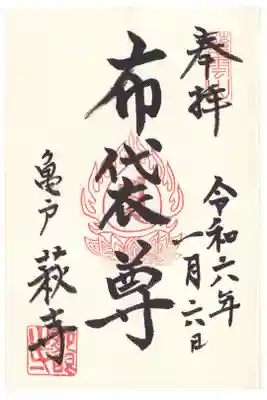 奉拝
令和六年
一月六日
布袋尊
亀戸
萩寺